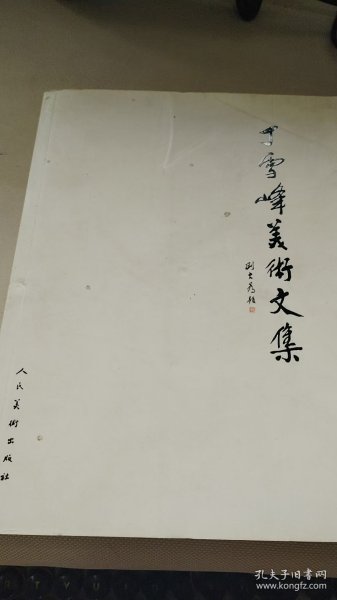 于雪峰美術文集
劉大為題
人民美術出版社
孔夫子旧书网
www.kongfz.com